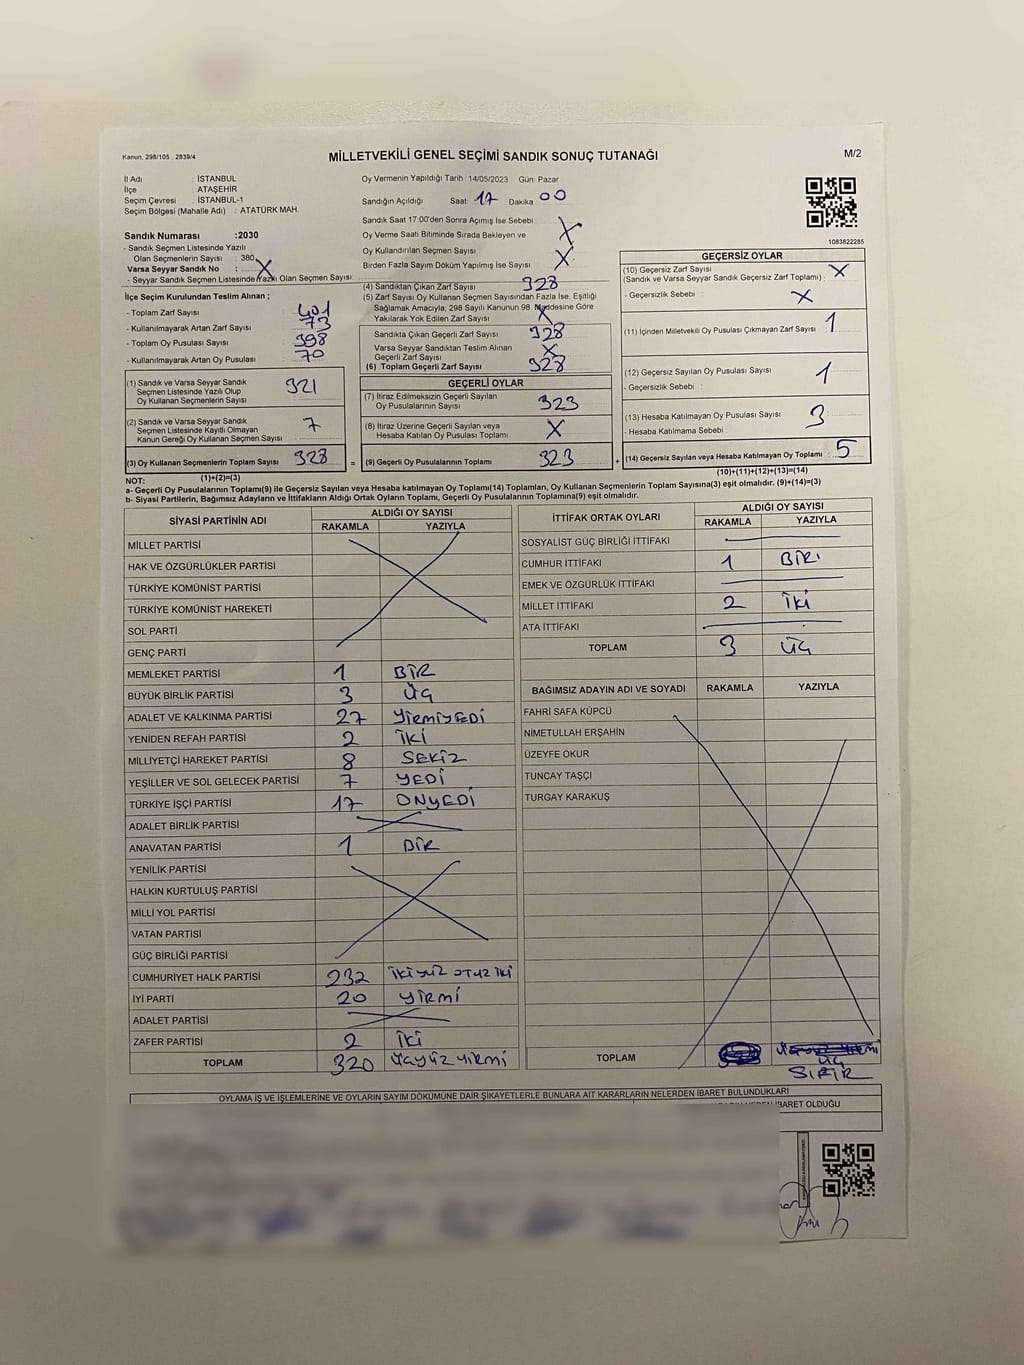 Kanun; 298/105 , 2839/4
MİLLETVEKİLİ GENEL SEÇİMİ SANDIK SONUÇ TUTANAĞI
M/2
İl Adı : İSTANBUL
İlçe : ATAŞEHİR
Seçim Çevresi : İSTANBUL-1
Seçim Bölgesi (Mahalle Adı) : ATATÜRK MAH.
Oy Vermenin Yapıldığı Tarih : 14/05/2023 Gün: Pazar
Sandığın Açıldığı Saat: 17 Dakika 00
Sandık Saat 17:00'den Sonra Açımış İse Sebebi
Oy Verme Saati Bitiminde Sırada Bekleyen ve X
Oy Kullandırılan Seçmen Sayısı
Birden Fazla Sayım Döküm Yapılmış İse Sayısı X
1083822285
Sandık Numarası :2030
- Sandık Seçmen Listesinde Yazılı
Olan Seçmenlerin Sayısı : 380
Varsa Seyyar Sandık No : X
- Seyyar Sandık Seçmen Listesinde Yazılı Olan Seçmen Sayısı:
İlçe Seçim Kurulundan Teslim Alınan ;
- Toplam Zarf Sayısı : 401
- Kullanılmayarak Artan Zarf Sayısı : 73
- Toplam Oy Pusulası Sayısı : 398
- Kullanılmayarak Artan Oy Pusulası : 70
(1) Sandık ve Varsa Seyyar Sandık
Seçmen Listesinde Yazılı Olup
Oy Kullanan Seçmenlerin Sayısı 321
(2) Sandık ve Varsa Seyyar Sandık
Seçmen Listesinde Kayıtlı Olmayan
Kanun Gereği Oy Kullanan Seçmen Sayısı 7
(3) Oy Kullanan Seçmenlerin Toplam Sayısı 328
(1)+(2)=(3)
(4) Sandıktan Çıkan Zarf Sayısı 328
(5) Zarf Sayısı Oy Kullanan Seçmen Sayısından Fazla İse, Eşitliği
Sağlamak Amacıyla; 298 Sayılı Kanunun 98. Maddesine Göre
Yakılarak Yok Edilen Zarf Sayısı X
Sandıkta Çıkan Geçerli Zarf Sayısı 328
Varsa Seyyar Sandıktan Teslim Alınan
Geçerli Zarf Sayısı X
(6) Toplam Geçerli Zarf Sayısı 328
GEÇERLİ OYLAR
(7) İtiraz Edilmeksizin Geçerli Sayılan
Oy Pusulalarının Sayısı 323
(8) İtiraz Üzerine Geçerli Sayılan veya
Hesaba Katılan Oy Pusulası Toplamı X
= (9) Geçerli Oy Pusulalarının Toplamı 323
GEÇERSİZ OYLAR
(10) Geçersiz Zarf Sayısı
(Sandık ve Varsa Seyyar Sandık Geçersiz Zarf Toplamı) : X
- Geçersizlik Sebebi ; X
(11) İçinden Milletvekili Oy Pusulası Çıkmayan Zarf Sayısı : 1
(12) Geçersiz Sayılan Oy Pusulası Sayısı : 1
- Geçersizlik Sebebi :
(13) Hesaba Katılmayan Oy Pusulası Sayısı : 3
- Hesaba Katılmama Sebebi :
+ (14) Geçersiz Sayılan veya Hesaba Katılmayan Oy Toplamı : 5
(10)+(11)+(12)+(13)=(14)
NOT:
a- Geçerli Oy Pusulalarının Toplamı(9) ile Geçersiz Sayılan veya Hesaba Katılmayan Oy Toplamı(14) Toplamları, Oy Kullanan Seçmenlerin Toplam Sayısına(3) eşit olmalıdır. (9)+(14)=(3)
b- Siyasi Partilerin, Bağımsız Adayların ve İttifakların Aldığı Ortak Oyların Toplamı, Geçerli Oy Pusulalarının Toplamına(9) eşit olmalıdır.
SİYASİ PARTİNİN ADI
ALDIĞI OY SAYISI
RAKAMLA YAZIYLA
MİLLET PARTİSİ
HAK VE ÖZGÜRLÜKLER PARTİSİ
TÜRKİYE KOMÜNİST PARTİSİ
TÜRKİYE KOMÜNİST HAREKETİ
SOL PARTİ
GENÇ PARTİ
MEMLEKET PARTİSİ 1 BİR
BÜYÜK BİRLİK PARTİSİ 3 ÜÇ
ADALET VE KALKINMA PARTİSİ 27 YİRMİYEDİ
YENİDEN REFAH PARTİSİ 2 İKİ
MİLLİYETÇİ HAREKET PARTİSİ 8 SEKİZ
YEŞİLLER VE SOL GELECEK PARTİSİ 7 YEDİ
TÜRKİYE İŞÇİ PARTİSİ 17 ONYEDİ
ADALET BİRLİK PARTİSİ
ANAVATAN PARTİSİ 1 BİR
YENİLİK PARTİSİ
HALKIN KURTULUŞ PARTİSİ
MİLLİ YOL PARTİSİ
VATAN PARTİSİ
GÜÇ BİRLİĞİ PARTİSİ
CUMHURİYET HALK PARTİSİ 232 İKİ YÜZ OTUZ İKİ
İYİ PARTİ 20 YİRMİ
ADALET PARTİSİ
ZAFER PARTİSİ 2 İKİ
TOPLAM 320 ÜÇYÜZ YİRMİ
İTTİFAK ORTAK OYLARI
ALDIĞI OY SAYISI
RAKAMLA YAZIYLA
SOSYALİST GÜÇ BİRLİĞİ İTTİFAKI
CUMHUR İTTİFAKI 1 BİR
EMEK VE ÖZGÜRLÜK İTTİFAKI
MİLLET İTTİFAKI 2 İKİ
ATA İTTİFAKI
TOPLAM 3 ÜÇ
BAĞIMSIZ ADAYIN ADI VE SOYADI RAKAMLA YAZIYLA
FAHRİ SAFA KÜPCÜ
NİMETULLAH ERŞAHİN
ÜZEYFE OKUR
TUNCAY TAŞÇI
TURGAY KARAKUŞ
TOPLAM
OYLAMA İŞ VE İŞLEMLERİNE VE OYLARIN SAYIM DÖKÜMÜNE DAİR ŞİKAYETLERLE BUNLARA AİT KARARLARIN NELERDEN İBARET BULUNDUKLARI
İBARET OLDUĞU